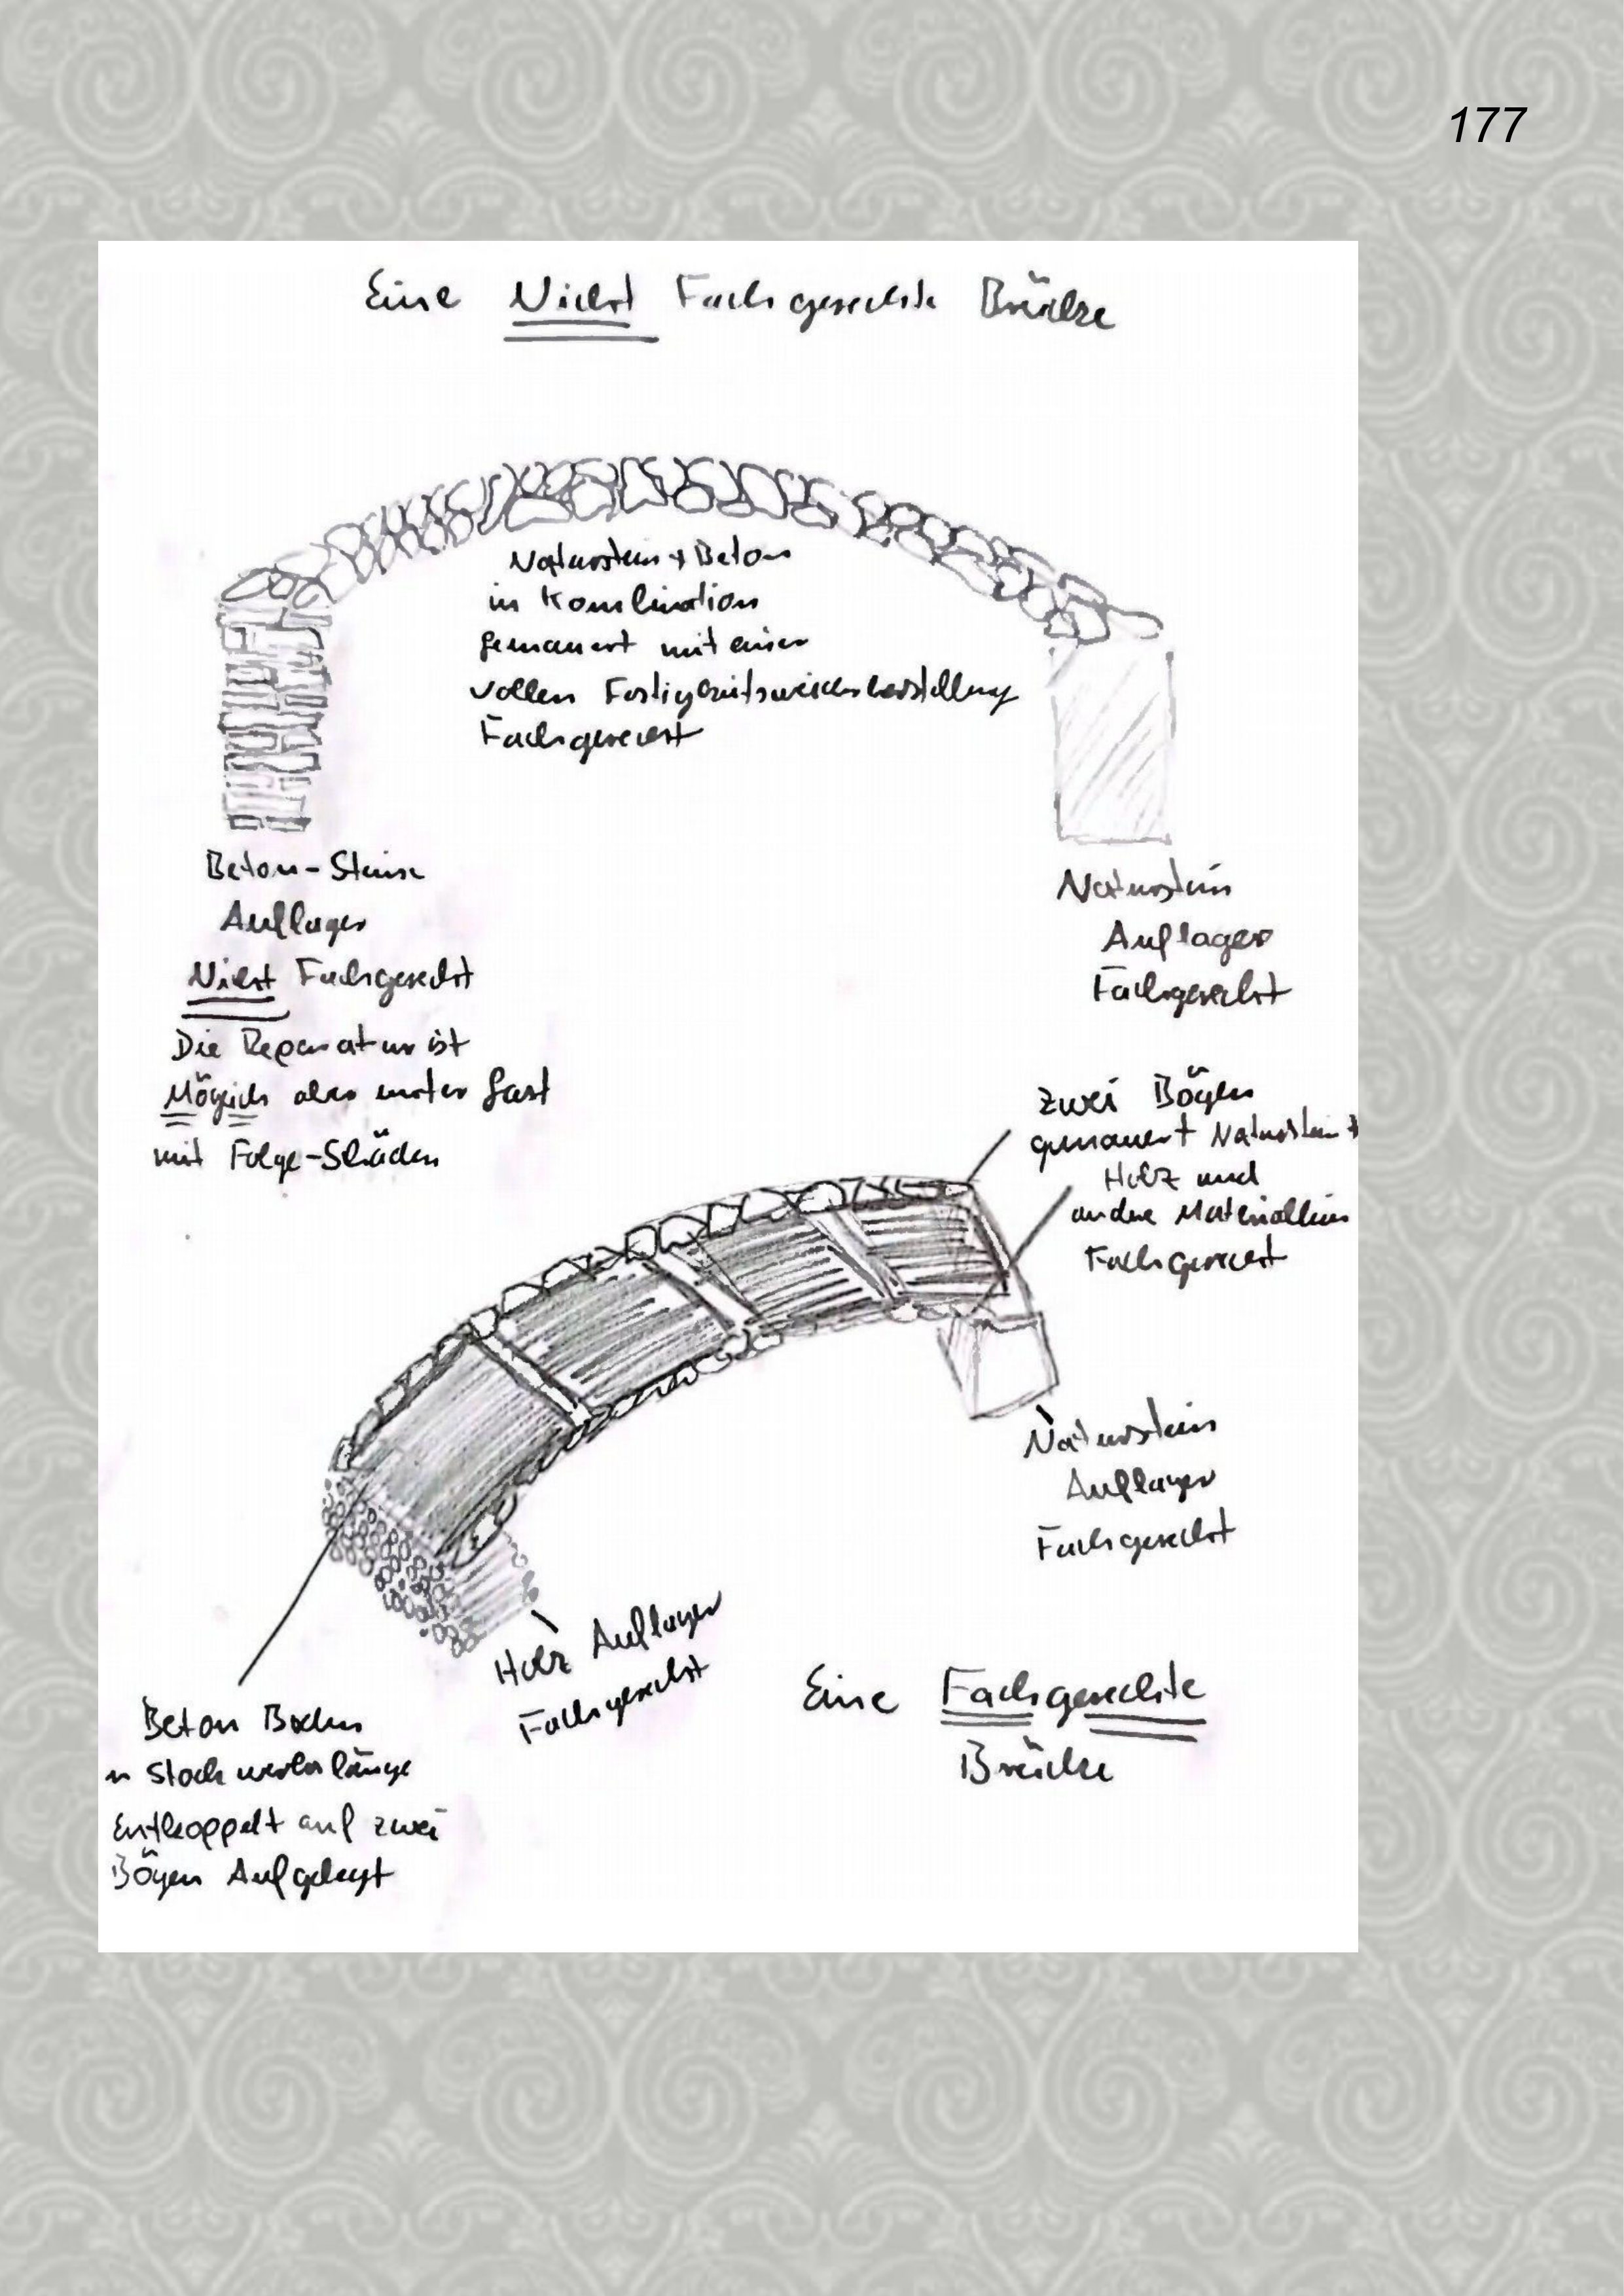 177
Eine Nicht Fachgerechte Brücke
Naturstein + Beton
in Kombination
gemauert mit einer
vollen Festigkeitswiederherstellung
Fachgerecht
Beton-Steine
Auflager
Nicht Fachgerecht
Die Reparatur ist
Möglich aber unter Last
mit Folge-Schäden
Naturstein
Auflager
Fachgerecht
zwei Bögen
gemauert Naturstein +
Holz und
andere Materialien
Fachgerecht
Naturstein
Auflager
Fachgerecht
Holz Auflager
Fachgerecht
Beton Boden
Stockwerkslänge
Entkoppelt auf zwei
Bögen Aufgelegt
Eine Fachgerechte
Brücke